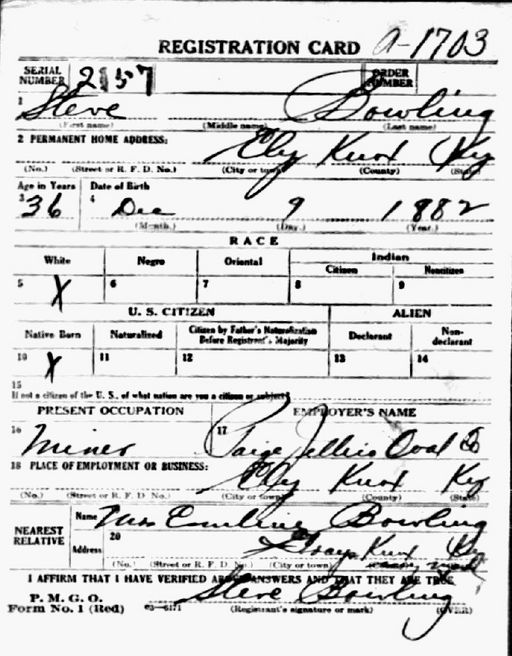 REGISTRATION CARD A-1703
SERIAL NUMBER 2157 ORDER NUMBER
1 Steve Bowling
(First name) (Middle name) (Last name)
2 PERMANENT HOME ADDRESS: Ely Knox Ky
(No.) (Street or R. F. D. No.) (City or town) (County) (State)
Age in Years Date of Birth
3 36 4 Dec 9 1882
(Month.) (Day.) (Year.)
RACE
White Negro Oriental Indian
Citizen Noncitizen
5 X 6 7 8 9
U. S. CITIZEN ALIEN
Native Born Naturalized Citizen by Father's Naturalization Before Registrant's Majority Declarant Non-declarant
10 X 11 12 13 14
15
If not a citizen of the U. S., of what nation are you a citizen or subject?
PRESENT OCCUPATION EMPLOYER'S NAME
16 Miner 17 Paige Jellico Coal Co
18 PLACE OF EMPLOYMENT OR BUSINESS: Ely Knox Ky
(No.) (Street or R. F. D. No.) (City or town) (County) (State)
NEAREST RELATIVE Name Mrs Emiline Bowling
Address 20 Knox Ky
(No.) (Street or R. F. D. No.) (City or town)
I AFFIRM THAT I HAVE VERIFIED ABOVE ANSWERS AND THAT THEY ARE TRUE
P. M. G. O.
Form No. 1 (Red) 03—6171 Steve Bowling
(Registrant's signature or mark) (OVER)